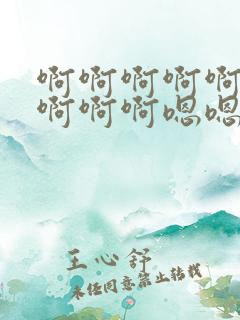 啊啊啊啊啊
啊啊啊嗯嗯
王心舒
未经同意禁止转载